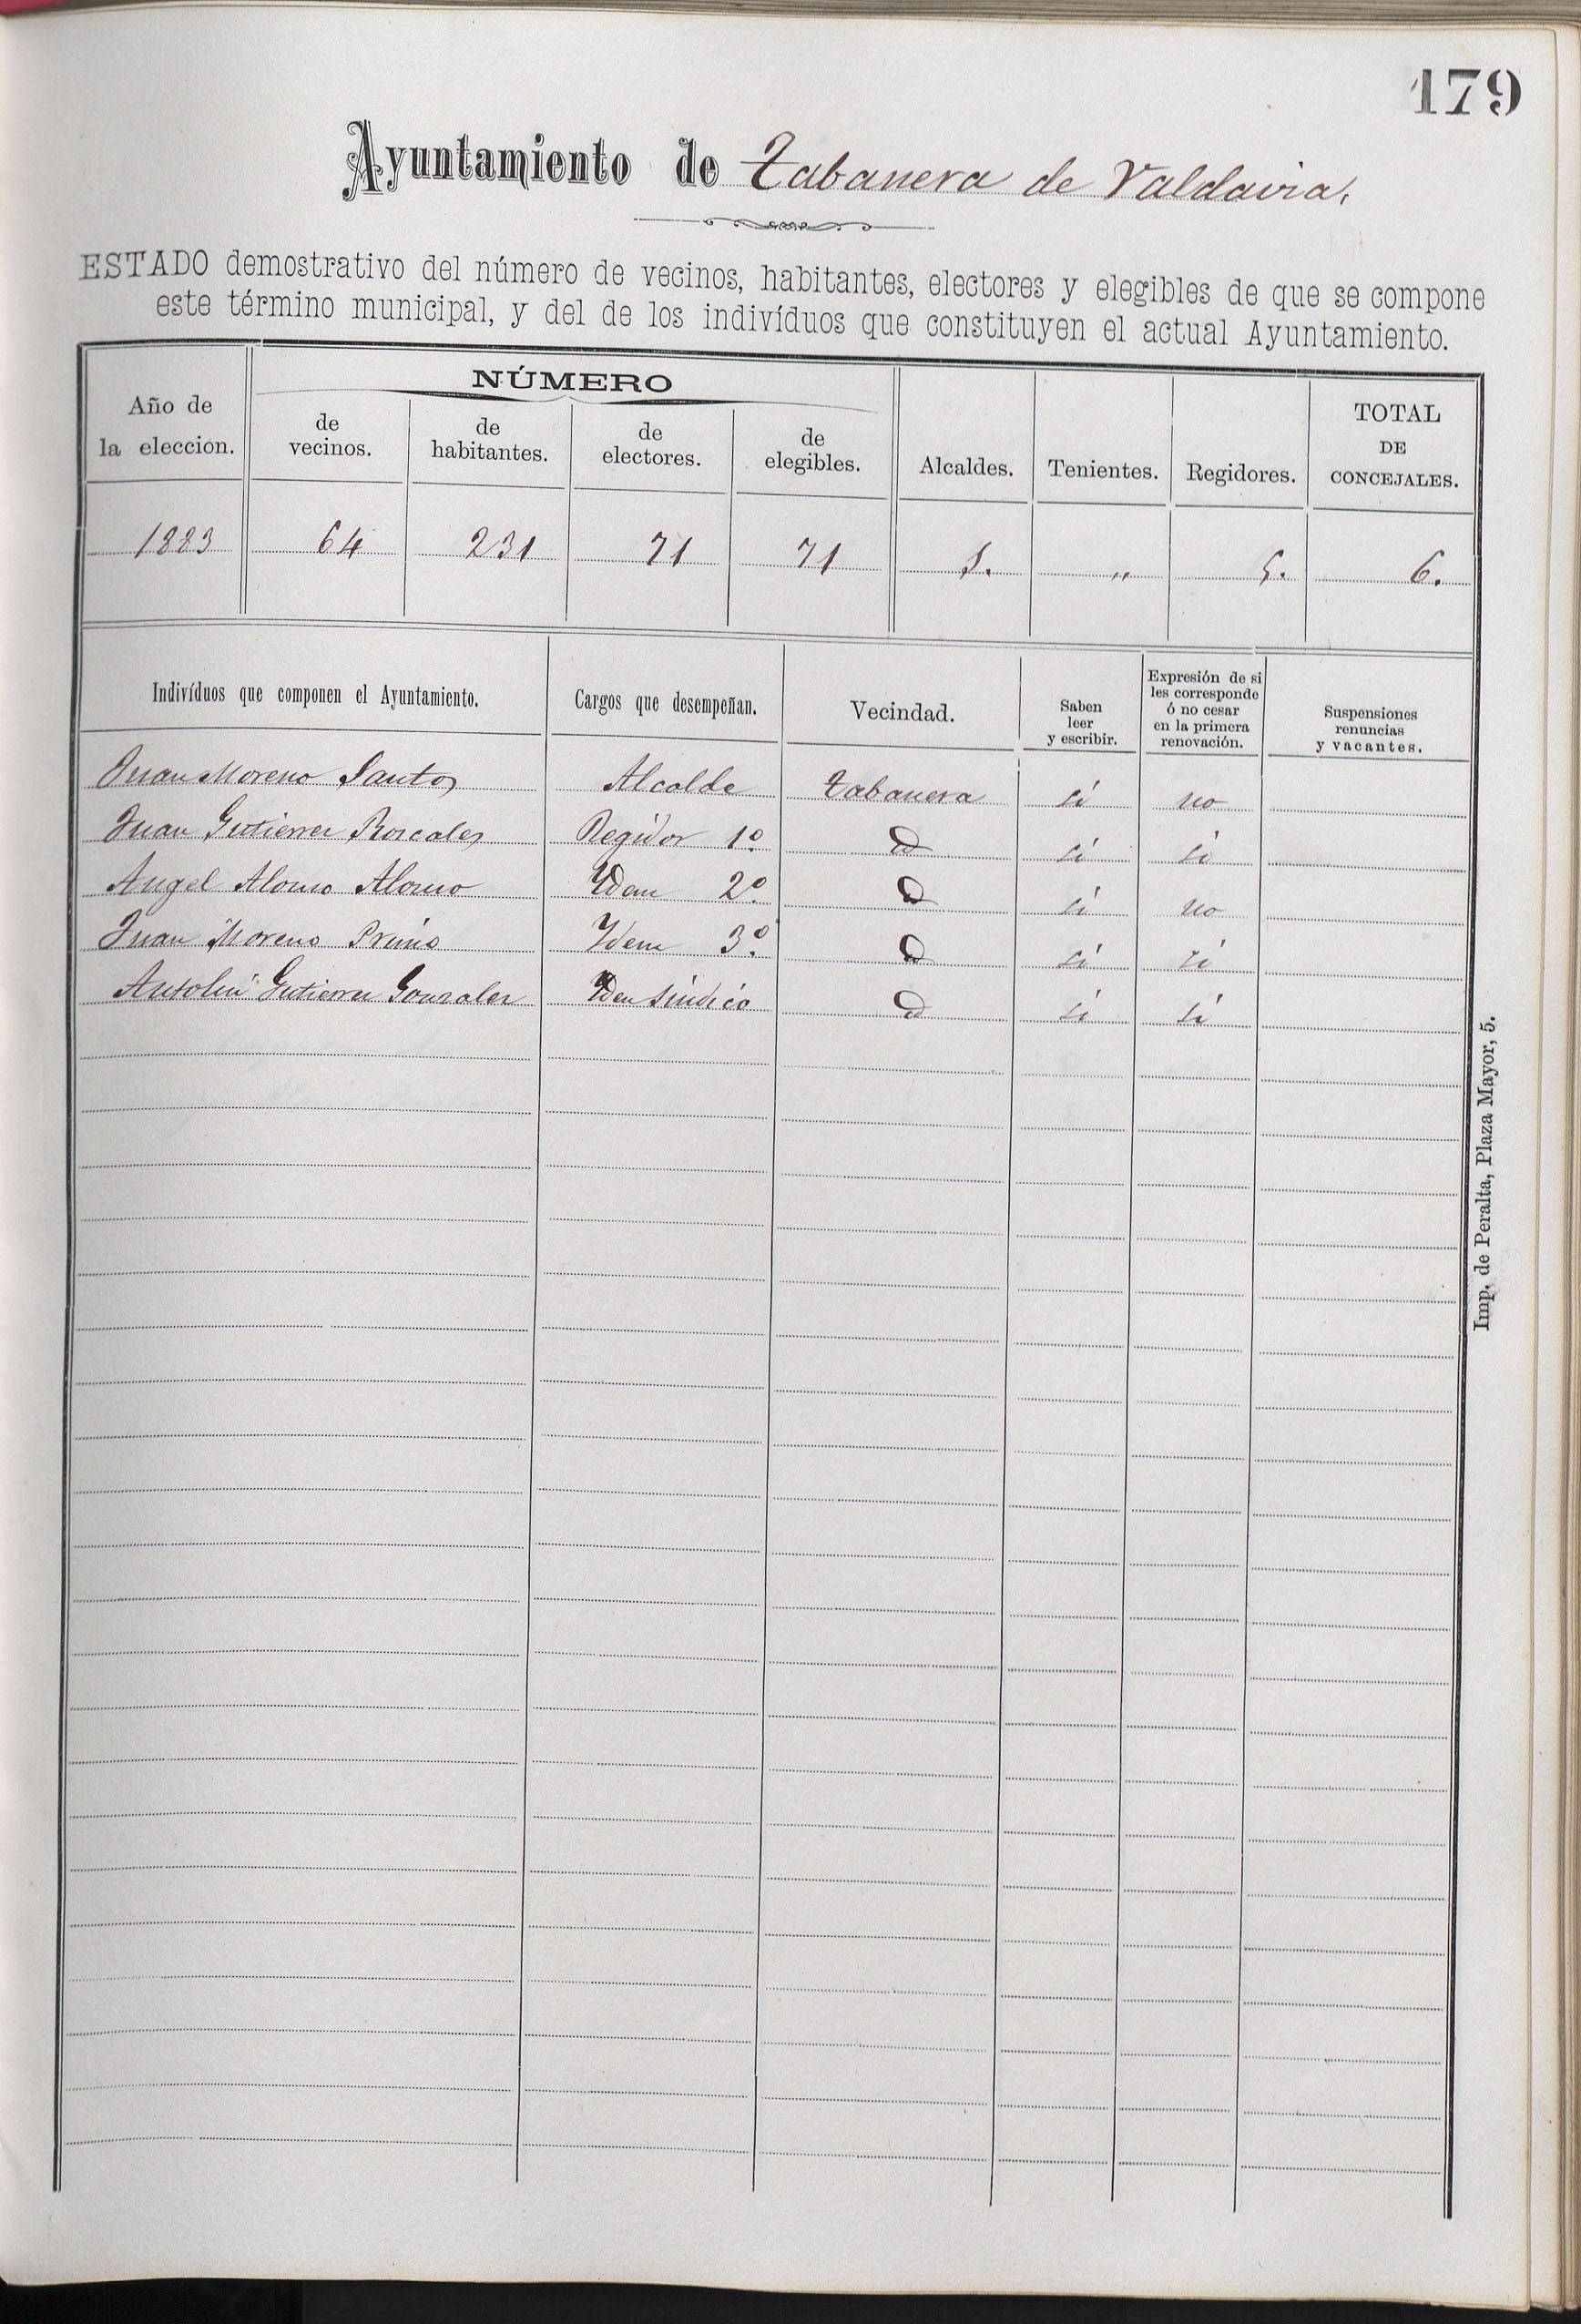 179
Ayuntamiento de Tabanera de Valdavia,
ESTADO demostrativo del número de vecinos, habitantes, electores y elegibles de que se compone
este término municipal, y del de los indivíduos que constituyen el actual Ayuntamiento.
NÚMERO
Año de la eleccion. de vecinos. de habitantes. de electores. de elegibles. Alcaldes. Tenientes. Regidores. TOTAL DE CONCEJALES.
1883 64 231 71 71 1. " 5. 6.
Indivíduos que componen el Ayuntamiento. Cargos que desempeñan. Vecindad. Saben leer y escribir. Expresión de si les corresponde ó no cesar en la primera renovación. Suspensiones renuncias y vacantes.
Juan Moreno Santos Alcalde Tabanera si no
Juan Gutierrez Roscales Regidor 1º si si
Angel Alonso Alonso Idem 2º si no
Juan Moreno Primo Idem 3º si si
Antolin Gutierrez Gonzalez Idem sindico si si
Imp. de Peralta, Plaza Mayor, 5.